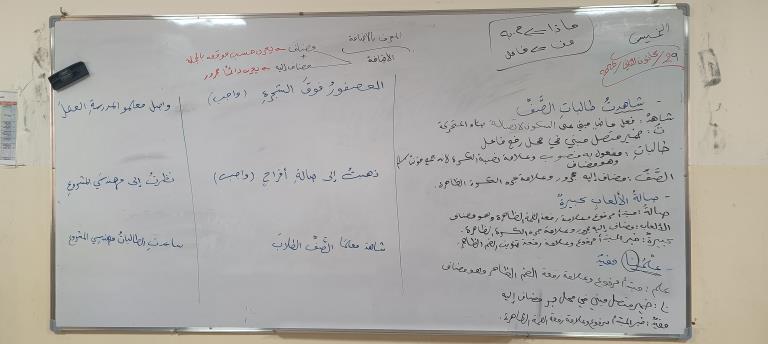 الخميس
29 / كانون الثاني /
ماذا ← م. به
من ← فاعل
المعرف بالإضافة
الإضافة
مضاف ← يعرب حسب موقعه بالجملة
+
مضاف إليه ← يعرب دائماً مجرور
- شاهدتُ طالباتِ الصَّفِّ
شاهدْ: فعل ماضٍ مبني على السكون لاتصاله بتاء المتحركة
تُ: ضمير متصل مبني في محل رفع فاعل
طالباتِ: مفعول به منصوب وعلامة نصبه الكسرة لأنه جمع مؤنث سالم
وهو مضاف
الصَّفِّ: مضاف إليه مجرور وعلامة جره الكسرة الظاهرة.
- صالةُ الألعابِ كبيرةٌ
صالةُ: مبتدأ مرفوع وعلامة رفعه الضمة الظاهرة وهو مضاف
الألعاب: مضاف إليه مجرور وعلامة جره الكسرة الظاهرة.
كبيرةٌ: خبر المبتدأ مرفوع وعلامة رفعه تنوين الضم الظاهر.
- علمُنا مفيدٌ
علم: مبتدأ مرفوع وعلامة رفعه الضم الظاهر وهو مضاف
نا: ضمير متصل مبني في محل جر مضاف إليه
مفيدٌ: خبر المبتدأ مرفوع وعلامة رفعه الضمة الظاهرة.
العصفورُ فوقَ الشجرةِ (واجب)
ذهبتُ إلى صالةِ أفراحٍ (واجب)
شاهدَ معلما الصَّفِّ الطلابَ
واصل معلمو المدرسةِ العملَ
نظرتُ إلى مهندسَي المشروعِ
ساعدتِ الطالباتُ مهندسِي المشروعِ